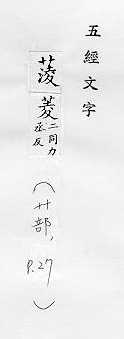 五經文字
蔆菱二同力
丞反
(艹部, P.27)